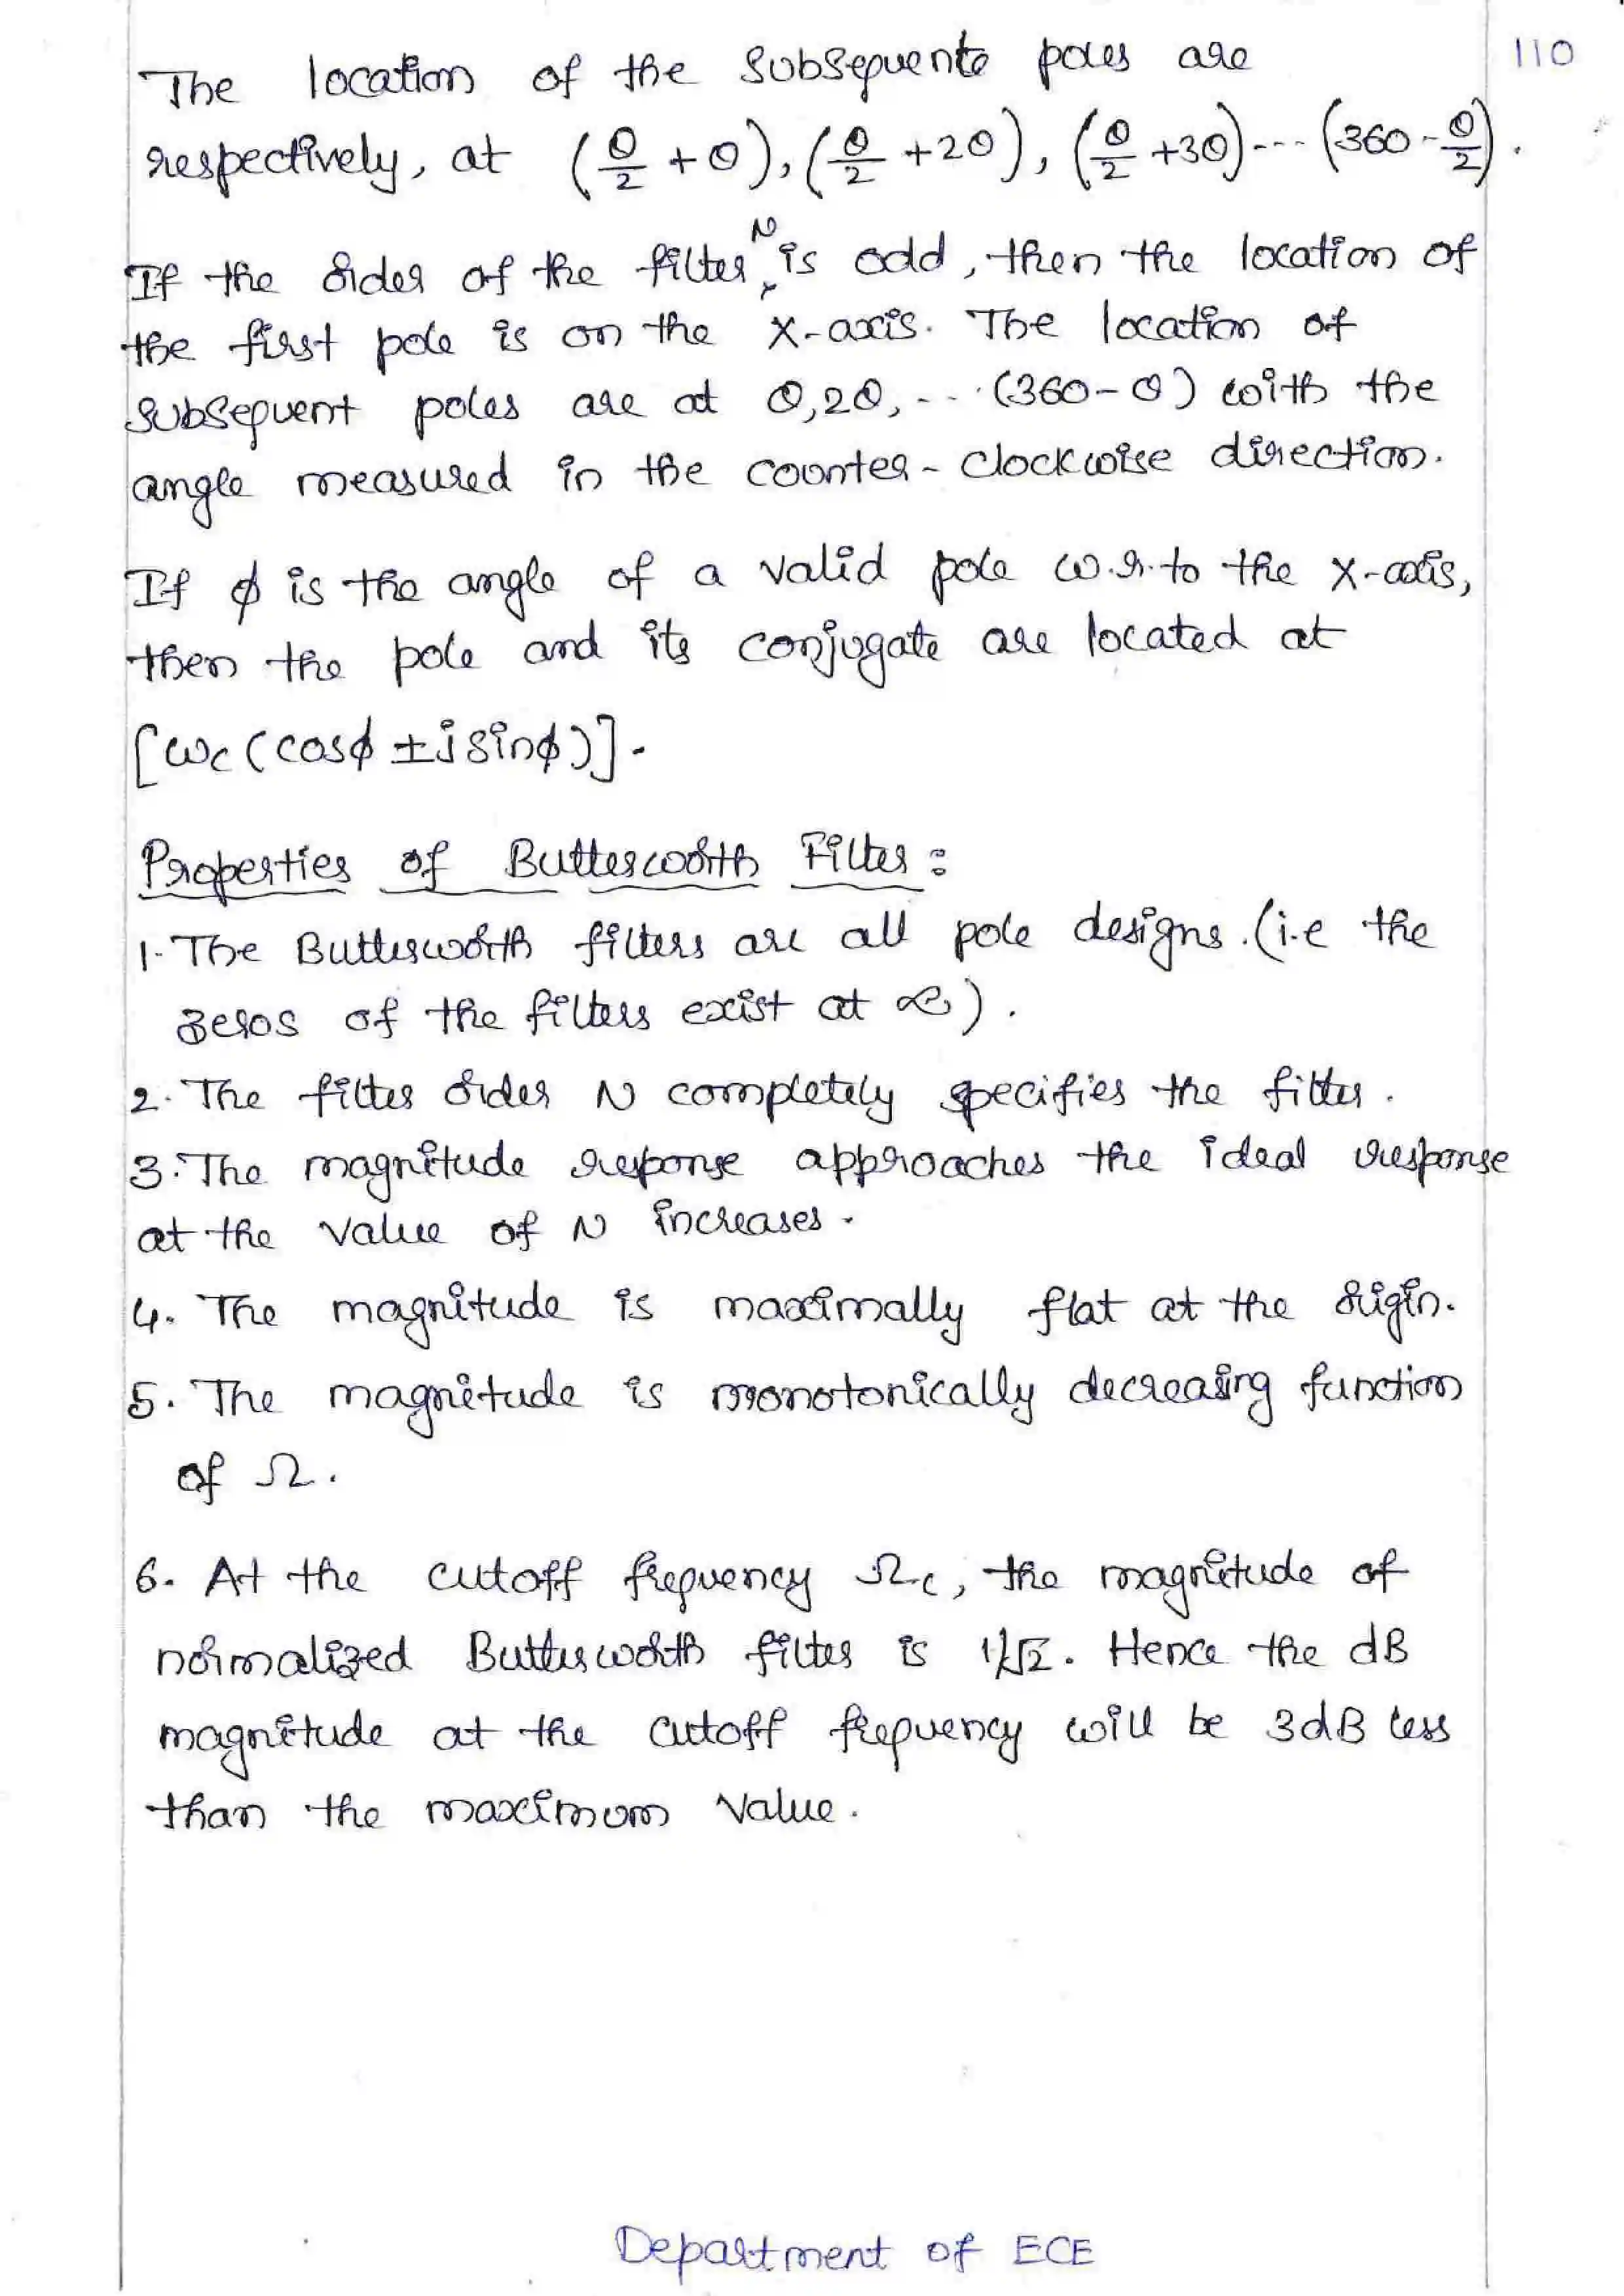 110
The location of the Subsequente poles are
respectively, at (θ/2 + θ), (θ/2 + 2θ), (θ/2 + 3θ)---- (360 - θ/2).
If the order of the filter N is odd, then the location of
the first pole is on the X-axis. The location of
subsequent poles are at θ, 2θ, --- (360-θ) with the
angle measured in the counter-clockwise direction.
If ϕ is the angle of a valid pole w.r.to the X-axis,
then the pole and its conjugate are located at
[ωc (cosϕ ±j sinϕ)].
Properties of Butterworth Filter:
1. The Butterworth filters are all pole designs. (i.e the
zeros of the filters exist at ∞).
2. The filter order N completely specifies the filter.
3. The magnitude response approaches the ideal response
at the value of N increases.
4. The magnitude is maximally flat at the origin.
5. The magnitude is monotonically decreasing function
of Ω.
6. At the cutoff frequency Ωc, the magnitude of
normalized Butterworth filter is 1/√2. Hence the dB
magnitude at the cutoff frequency will be 3dB less
than the maximum value.
Department of ECE